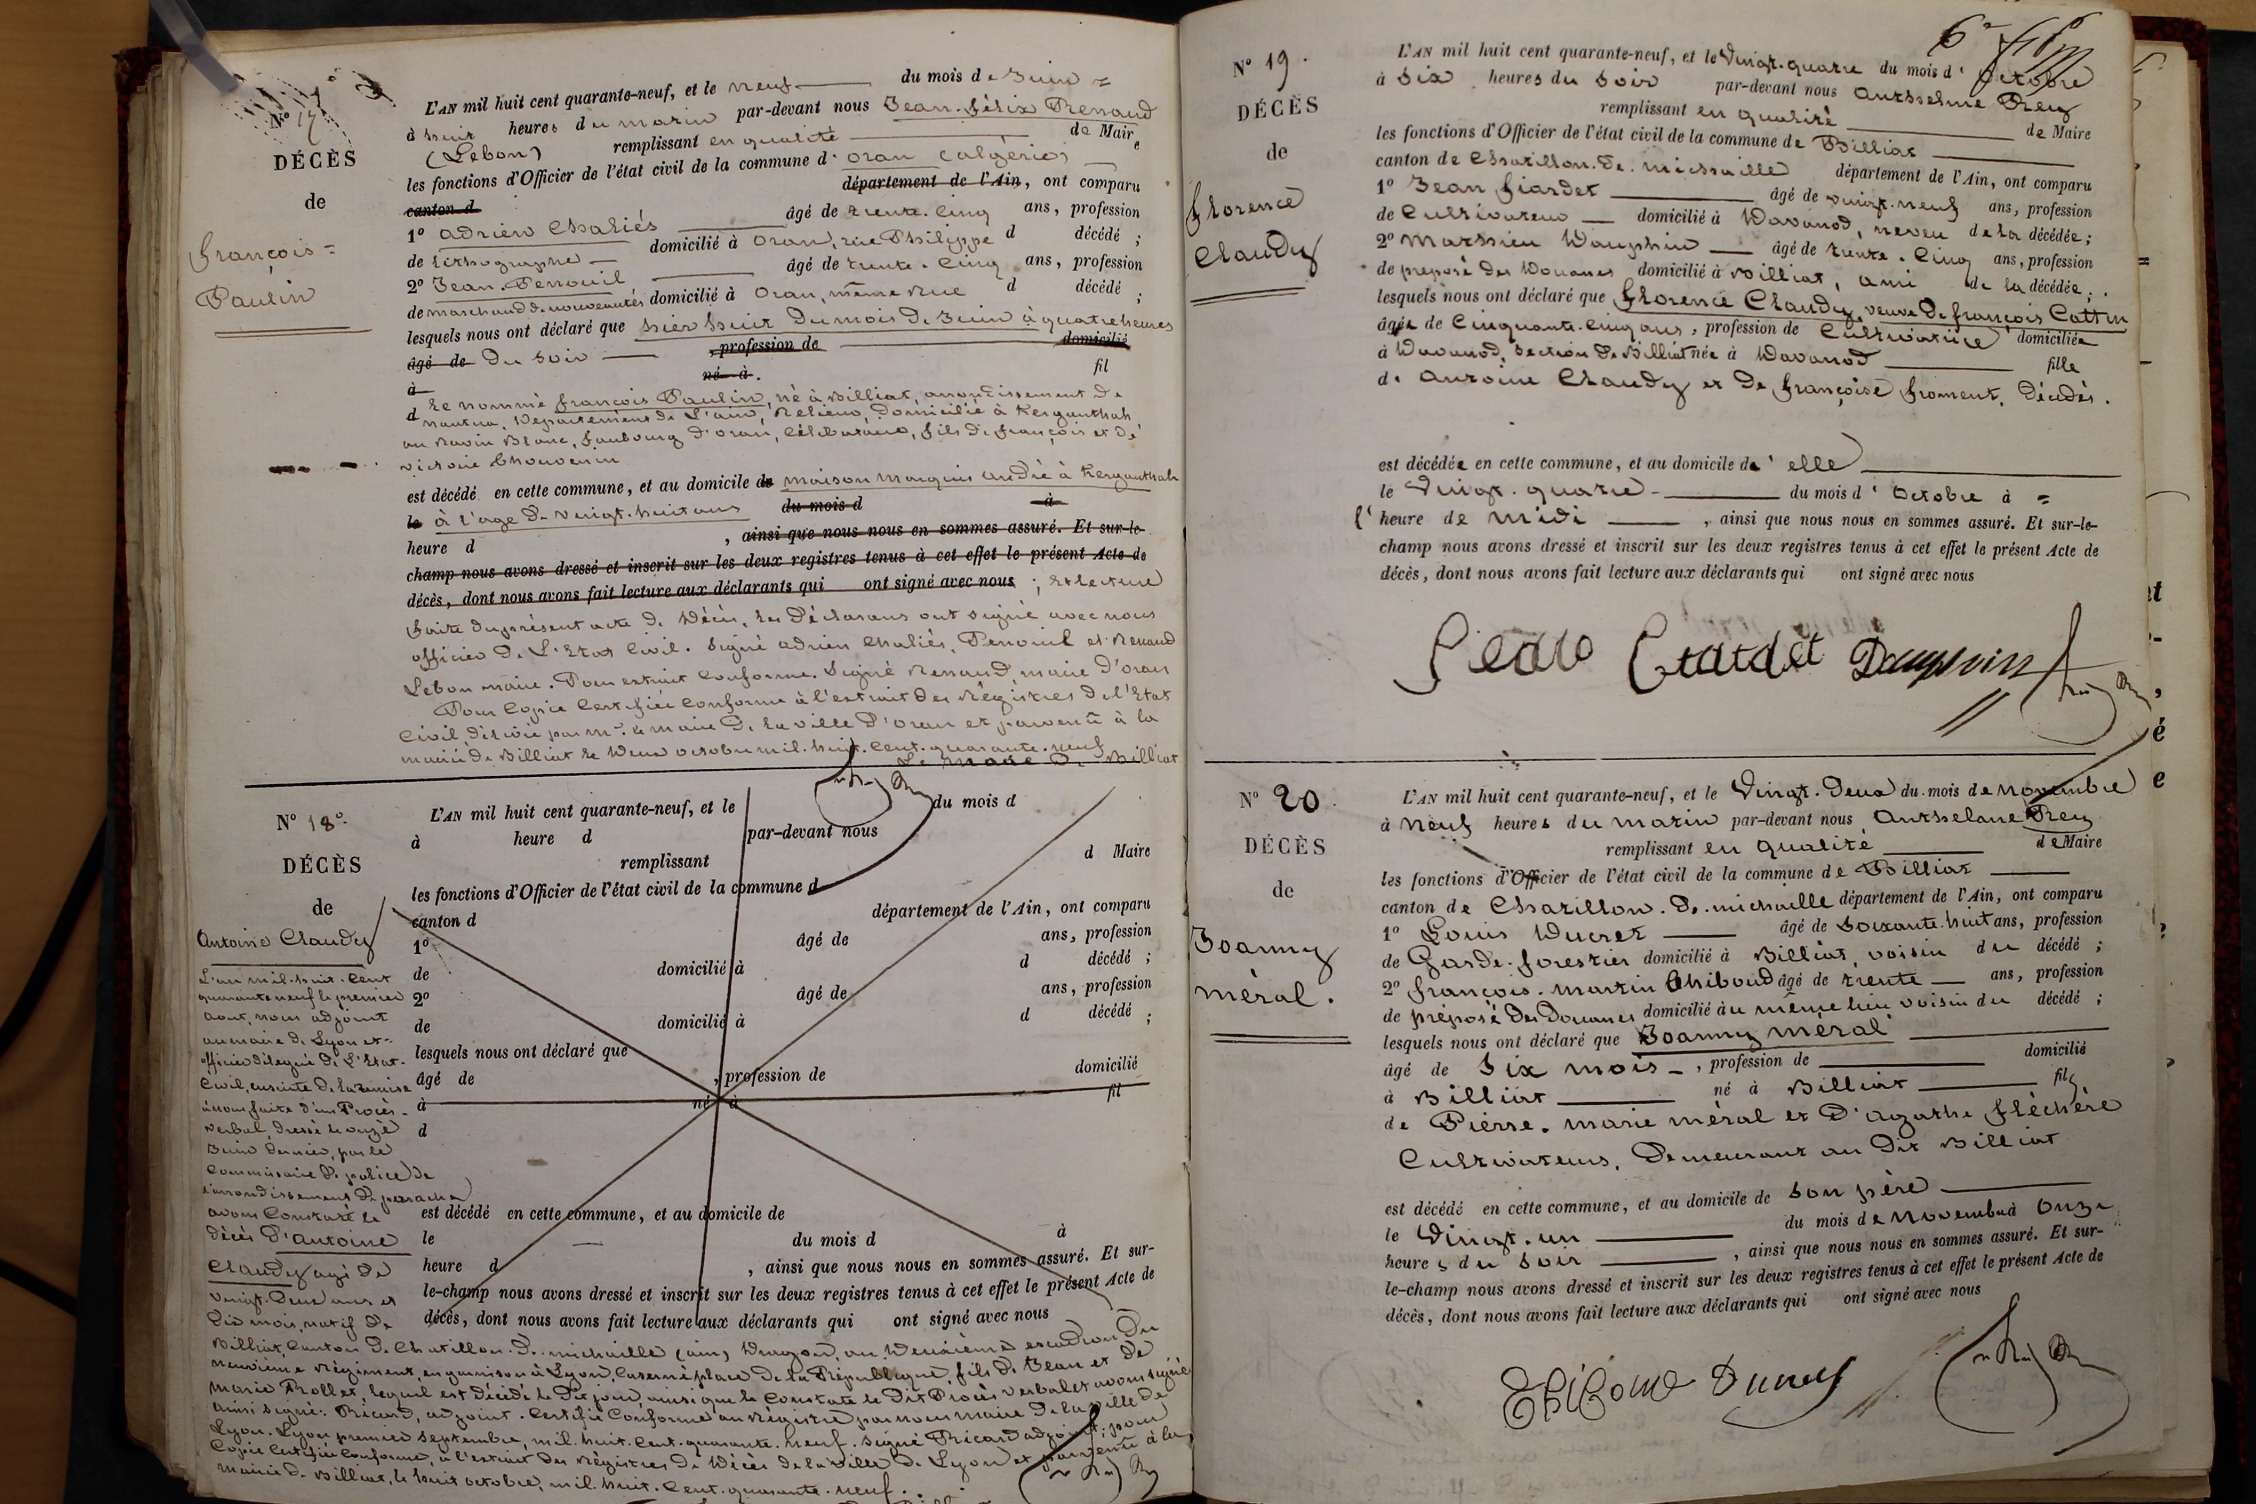 N° 17
DÉCÈS
de
françois =
Paulin
L'AN mil huit cent quarante-neuf, et le neuf du mois de Juin =
à huit heures du matin par-devant nous Jean-félix Renaud
(Lebon) remplissant en qualité de Maire
les fonctions d'Officier de l'état civil de la commune d'oran (algérie)
canton d département de l'Ain, ont comparu
1° adrien Chaliés âgé de trente-cinq ans, profession
de lithographe domicilié à oran, rue Philippe d décédé ;
2° Jean Penouil âgé de trente-cinq ans, profession
de marchand de nouveautés domicilié à oran, même rue d décédé ;
lesquels nous ont déclaré que hier huit du mois de Juin à quatre heures
âgé de du soir , profession de domicilié
à né à . fil
d le nommé françois Paulin, né à Billiat, arrondissement de
nantua, département de l'ain, Relieur, domicilié à Kergunthah
au Ravin Blanc, faubourg d'oran, célibataire, fils de françois et de
victoire Chouvenin
est décédé en cette commune, et au domicile de maison marquis andré à Kergunthah
le à l'age de vingt-huit ans du mois d à
heure d , ainsi que nous nous en sommes assuré. Et sur-le-
champ nous avons dressé et inscrit sur les deux registres tenus à cet effet le présent Acte de
décès, dont nous avons fait lecture aux déclarants qui ont signé avec nous ; Et lecture
faite du présent acte de Décès, les Déclarans ont signé avec nous
officier de L'Etat Civil. Signé adrien Chaliés, Penouil et Renaud
Lebon maire. Pour extrait conforme. Signé Renaud, maire d'oran
Pour Copie Certifiée Conforme à l'extrait des Régistres de l'Etat
Civil, délivré par mr. le maire de la ville d'oran et parvenu à la
mairie de Billiat le deux octobre mil-huit-cent-quarante-neuf
Le maire de Billiat
N° 18°
DÉCÈS
de
Antoine Claudy
L'AN mil huit cent quarante-neuf, et le du mois d
à heure d par-devant nous
remplissant d Maire
les fonctions d'Officier de l'état civil de la commune d
canton d département de l'Ain, ont comparu
1° âgé de ans, profession
de domicilié à d décédé ;
2° âgé de ans, profession
de domicilié à d décédé ;
lesquels nous ont déclaré que
âgé de , profession de domicilié
à né à fil
d
est décédé en cette commune, et au domicile de
le du mois d à
heure d , ainsi que nous nous en sommes assuré. Et sur-
le-champ nous avons dressé et inscrit sur les deux registres tenus à cet effet le présent Acte de
décès, dont nous avons fait lecture aux déclarants qui ont signé avec nous
L'an mil-huit-cent
quarante neuf le premier
aout, nous adjoint
au maire de Lyon et
officier délégué de L'Etat-
Civil, ensuite de la remise
à nous faite d'un Procès-
verbal, dressé le onze
Juin dernier, par le
Commissaire de police de
l'arrondissement de perrache
avons constaté le
décès d'antoine
Claudy agé de
vingt-deux ans et
dix mois, natif de
Billiat, Canton de Chatillon-de-michaille (ain), Dragon, au deuxième escadron du
neuvième Régiment, en garnison à Lyon, Caserné place de la République, fils de Jean et de
marie Rollet, lequel est décédé le dit jour, ainsi que le constate le dit Procès verbal et avons signé
ainsi signé: Ricard, adjoint. Certifié Conforme au Régistre par nous maire de la ville de
Lyon. Lyon premier Septembre, mil-huit-cent-quarante-neuf. Signé Ricard adjoint; pour
Copie Certifiée Conforme, à l'extrait des Régistres de Décès de la ville de Lyon et parvenu à la
mairie de Billiat, le huit octobre, mil-huit-cent-quarante-neuf.
6e
N° 19.
DÉCÈS
de
florence
Claudy
L'AN mil huit cent quarante-neuf, et le Vingt-quatre du mois d'octobre
à Six heures du Soir par-devant nous Anthelme Prey
remplissant en qualité de Maire
les fonctions d'Officier de l'état civil de la commune de Billiat
canton de Chatillon-de-michaille département de l'Ain, ont comparu
1° Jean fiardet âgé de vingt-neuf ans, profession
de Cultivateur domicilié à Davanod, neveu de la décédée ;
2° Mathieu Dauphin âgé de trente-cinq ans, profession
de préposé des Douanes domicilié à Billiat, ami de la décédée ;
lesquels nous ont déclaré que florence Claudy, veuve de françois Cattin
âgée de Cinquante-cinq ans, profession de Cultivatrice domiciliée
à Davanod, section de Billiat née à Davanod fille
d'antoine Claudy et de françoise froment, décédés.
est décédée en cette commune, et au domicile d'elle
le Vingt-quatre du mois d'octobre à =
l'heure de midi , ainsi que nous nous en sommes assuré. Et sur-le-
champ nous avons dressé et inscrit sur les deux registres tenus à cet effet le présent Acte de
décès, dont nous avons fait lecture aux déclarants qui ont signé avec nous
Dauphin
N° 20.
DÉCÈS
de
Joanny
méral.
L'AN mil huit cent quarante-neuf, et le Vingt-deux du mois de Novembre
à Neuf heures du matin par-devant nous Anthelme Prey
remplissant en qualité de Maire
les fonctions d'Officier de l'état civil de la commune de Billiat
canton de Chatillon-de-michaille département de l'Ain, ont comparu
1° Louis Ducret âgé de Soixante-huit ans, profession
de Garde-forestier domicilié à Billiat, voisin du décédé ;
2° françois-martin Thiboud âgé de trente ans, profession
de préposé des Douanes domicilié au même lieu voisin du décédé ;
lesquels nous ont déclaré que Joanny méral
âgé de Six mois , profession de domicilié
à Billiat né à Billiat fils
de Pierre-marie méral et d'agathe fléchère
Cultivateurs, Demeurant au Dit Billiat
est décédé en cette commune, et au domicile de Son père
le Vingt-un du mois de Novembre à onze
heures du Soir , ainsi que nous nous en sommes assuré. Et sur-
le-champ nous avons dressé et inscrit sur les deux registres tenus à cet effet le présent Acte de
décès, dont nous avons fait lecture aux déclarants qui ont signé avec nous
Thiboud Ducret